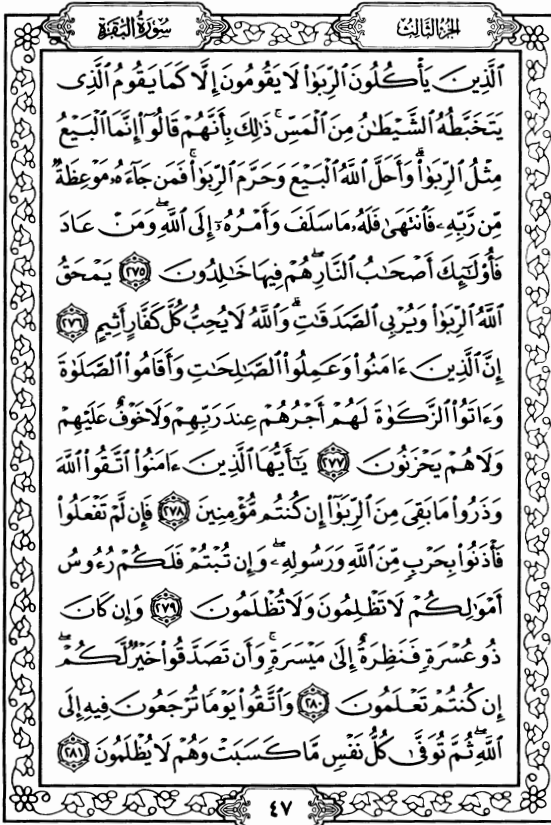 الجزء الثالث
سورة البقرة
ٱلَّذِينَ يَأۡكُلُونَ ٱلرِّبَوٰاْ لَا يَقُومُونَ إِلَّا كَمَا يَقُومُ ٱلَّذِى
يَتَخَبَّطُهُ ٱلشَّيۡطَٰنُ مِنَ ٱلۡمَسِّۚ ذَٰلِكَ بِأَنَّهُمۡ قَالُوٓاْ إِنَّمَا ٱلۡبَيۡعُ
مِثۡلُ ٱلرِّبَوٰاْۗ وَأَحَلَّ ٱللَّهُ ٱلۡبَيۡعَ وَحَرَّمَ ٱلرِّبَوٰاْۚ فَمَن جَآءَهُۥ مَوۡعِظَةٌ
مِّن رَّبِّهِۦ فَٱنتَهَىٰ فَلَهُۥ مَا سَلَفَ وَأَمۡرُهُۥٓ إِلَى ٱللَّهِۖ وَمَنۡ عَادَ
فَأُوْلَٰٓئِكَ أَصۡحَٰبُ ٱلنَّارِۖ هُمۡ فِيهَا خَٰلِدُونَ ٢٧٥ يَمۡحَقُ
ٱللَّهُ ٱلرِّبَوٰاْ وَيُرۡبِى ٱلصَّدَقَٰتِۗ وَٱللَّهُ لَا يُحِبُّ كُلَّ كَفَّارٍ أَثِيمٍ ٢٧٦
إِنَّ ٱلَّذِينَ ءَامَنُواْ وَعَمِلُواْ ٱلصَّٰلِحَٰتِ وَأَقَامُواْ ٱلصَّلَوٰةَ
وَءَاتَوُاْ ٱلزَّكَوٰةَ لَهُمۡ أَجۡرُهُمۡ عِندَ رَبِّهِمۡ وَلَا خَوۡفٌ عَلَيۡهِمۡ
وَلَا هُمۡ يَحۡزَنُونَ ٢٧٧ يَٰٓأَيُّهَا ٱلَّذِينَ ءَامَنُواْ ٱتَّقُواْ ٱللَّهَ
وَذَرُواْ مَا بَقِىَ مِنَ ٱلرِّبَوٰٓاْ إِن كُنتُم مُّؤۡمِنِينَ ٢٧٨ فَإِن لَّمۡ تَفۡعَلُواْ
فَأۡذَنُواْ بِحَرۡبٍ مِّنَ ٱللَّهِ وَرَسُولِهِۦۖ وَإِن تُبۡتُمۡ فَلَكُمۡ رُءُوسُ
أَمۡوَٰلِكُمۡ لَا تَظۡلِمُونَ وَلَا تُظۡلَمُونَ ٢٧٩ وَإِن كَانَ
ذُو عُسۡرَةٍ فَنَظِرَةٌ إِلَىٰ مَيۡسَرَةٍۚ وَأَن تَصَدَّقُواْ خَيۡرٌ لَّكُمۡۖ
إِن كُنتُمۡ تَعۡلَمُونَ ٢٨٠ وَٱتَّقُواْ يَوۡمًا تُرۡجَعُونَ فِيهِ إِلَى
ٱللَّهِۖ ثُمَّ تُوَفَّىٰ كُلُّ نَفۡسٍ مَّا كَسَبَتۡ وَهُمۡ لَا يُظۡلَمُونَ ٢٨١
٤٧